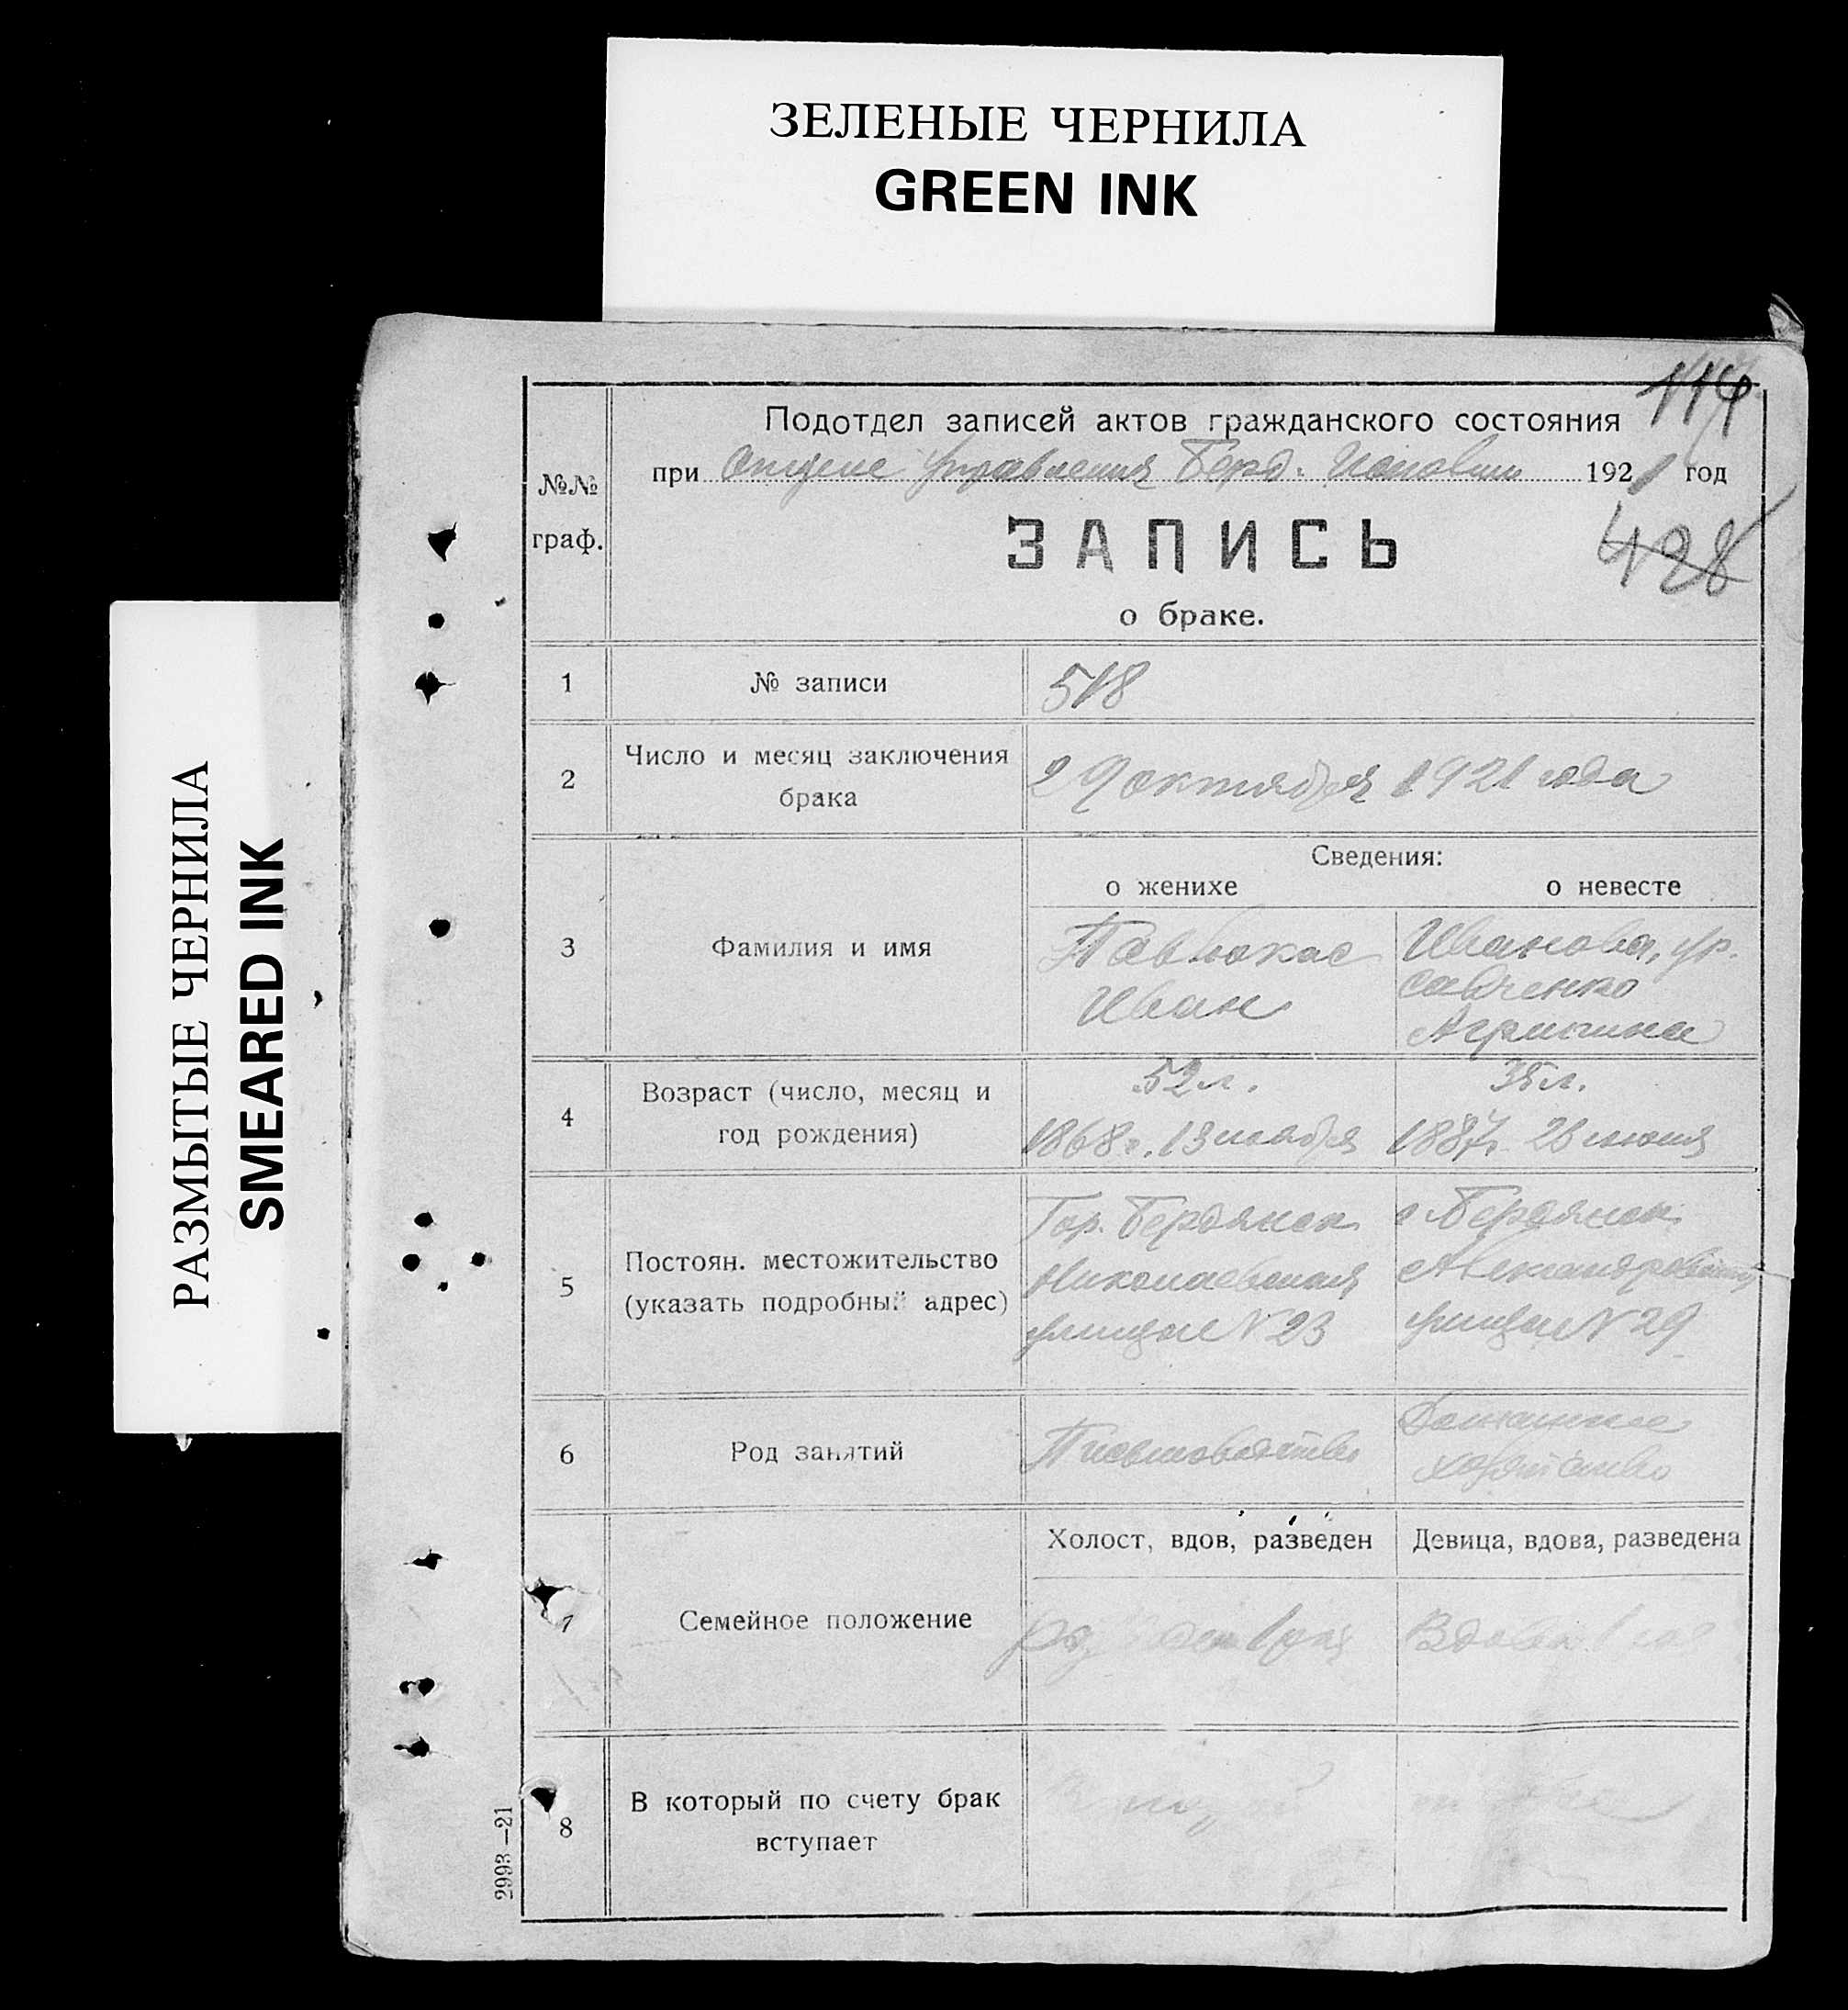 ЗЕЛЕНЫЕ ЧЕРНИЛА
GREEN INK
РАЗМЫТЫЕ ЧЕРНИЛА
SMEARED INK
114
№№ граф.
Подотдел записей актов гражданского состояния
при Отделе Управления Берд. 1921 год
ЗАПИСЬ
428
о браке.
1 № записи 518
2 Число и месяц заключения брака 29 октября 1921 года
Сведения:
о женихе о невесте
3 Фамилия и имя
Иван
Иванова, ур.
Савченко
Агрипина
4 Возраст (число, месяц и год рождения)
52 л.
1868 г. 13 ноября
1887г. 26 июня
5 Постоян. местожительство (указать подробный адрес)
Гор. Бердянск
Николаевская
улица N 23
г. Бердянск
Александровская
улица N 29
6 Род занятий
Домашнее
хозяйство
7 Семейное положение
Холост, вдов, разведен
Девица, вдова, разведена
Вдова
8 В который по счету брак вступает
2993—21